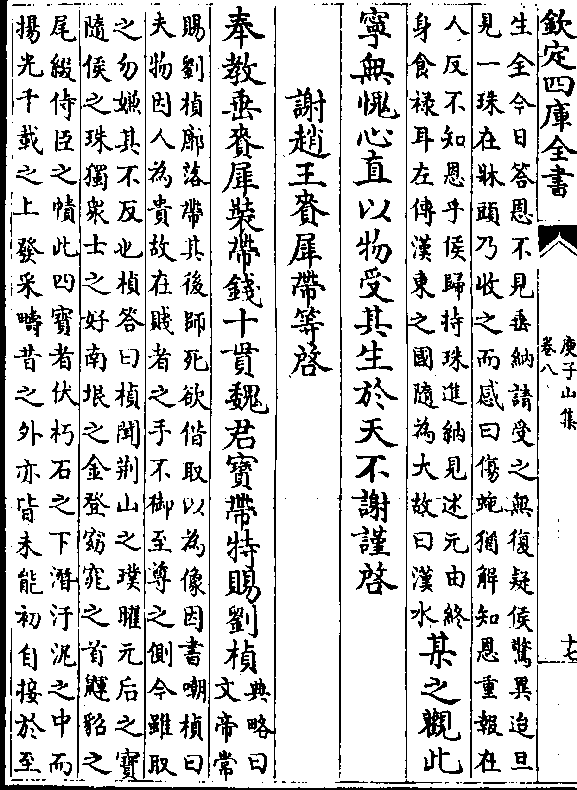 欽定四庫全書
庚子山集
卷八
十七
生全今日答恩不見垂納請受之無復疑侯驚異迨旦
見一珠在牀頭乃收之而感曰傷蛇猶解知恩重報在
人反不知恩乎侯歸持珠進納見述元由終
身食祿耳左傳漢東之國隨為大故曰漢水
某之觀此
寧無愧心直以物受其生於天不謝謹啓
謝趙王賚犀帶等啓
奉教垂賚犀裝帶錢十貫魏君寶帶特賜劉楨
典略曰
文帝常
賜劉楨廓落帶其後師死欲借取以為像因書嘲楨曰
夫物因人為貴故在賤者之手不御至尊之側今雖取
之勿嫌其不反也楨答曰楨聞荆山之璞曜元后之寶
隨侯之珠獨衆士之好南垠之金登窈窕之首鼲貂之
尾綴侍臣之幘此四寶者伏朽石之下潛汙泥之中而
揚光千載之上發采疇昔之外亦皆未能初自接於至